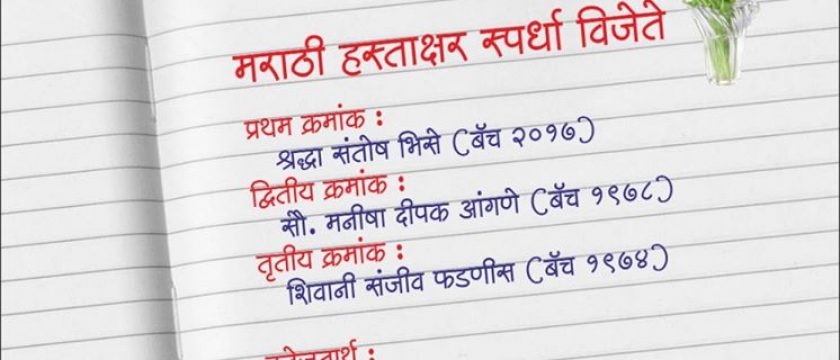 मराठी हस्ताक्षर स्पर्धा विजेते
प्रथम क्रमांक :
श्रद्धा संतोष भिसे (बॅच २०१७)
द्वितीय क्रमांक :
सौ. मनीषा दीपक आंगणे (बॅच १९७८)
तृतीय क्रमांक :
शिवानी संजीव फडणीस (बॅच १९७४)